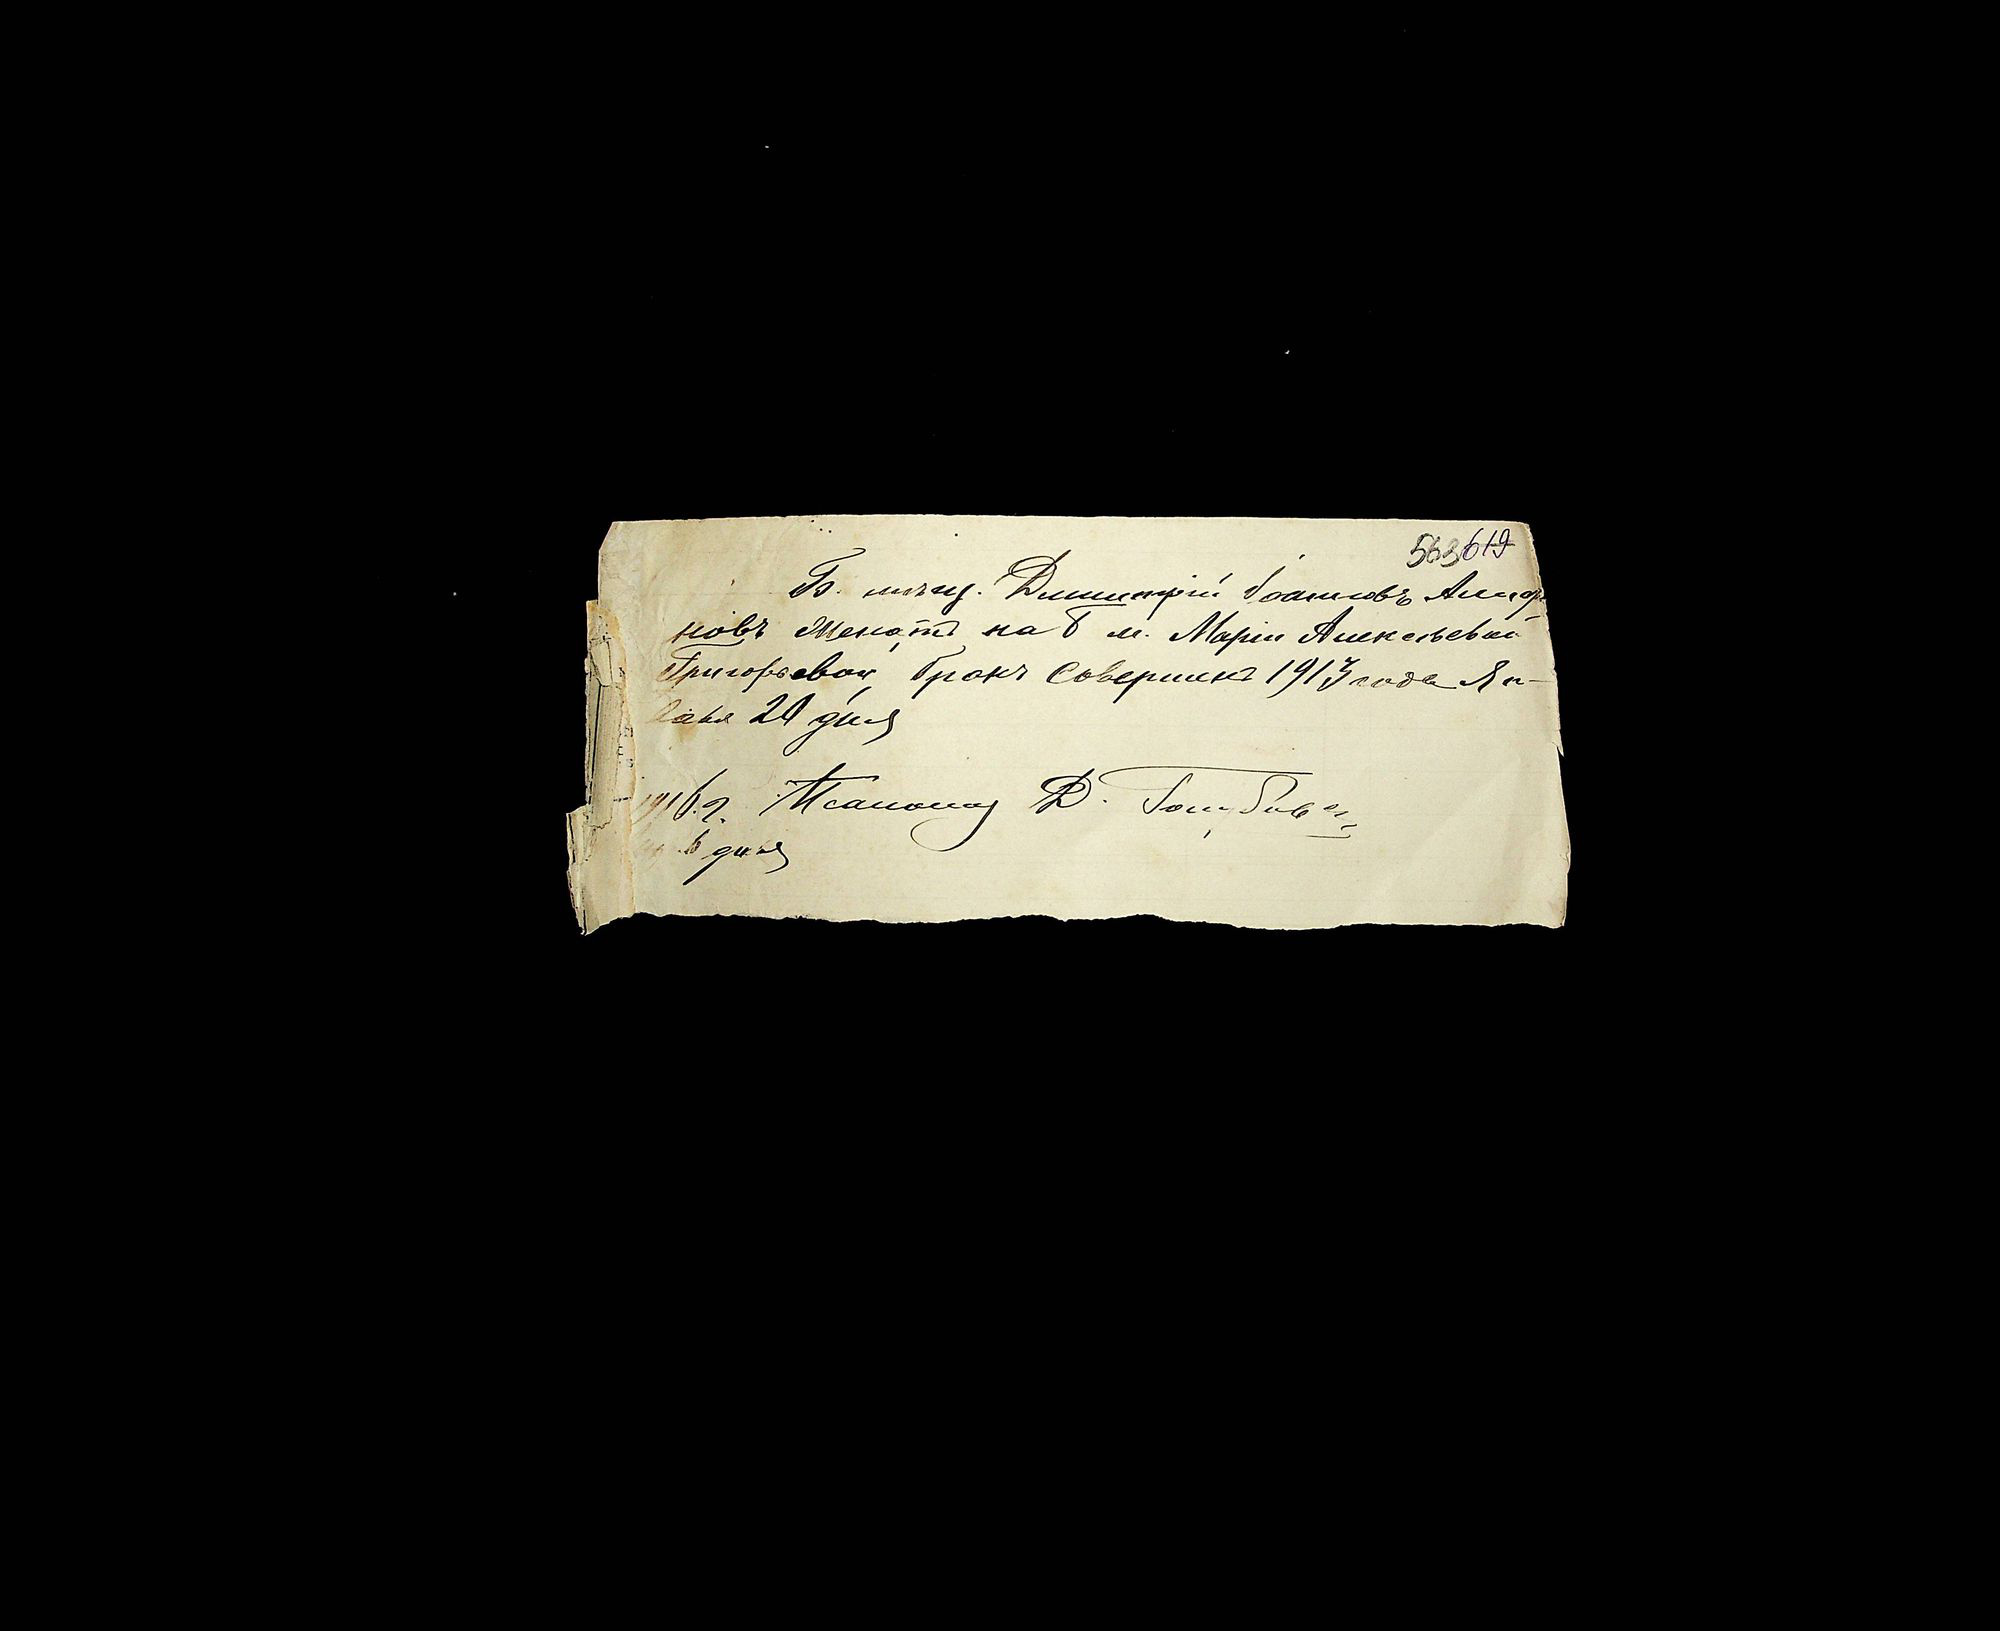 563 619
Б. мѣщ. Димитрій Іоанновъ
новъ женатъ на б м. Маріи Алексѣевой
Григорьевой, бракъ совершенъ 1913 года Ян-
варя 20 дня
1916 г. Псаломщ Д.
6 дня